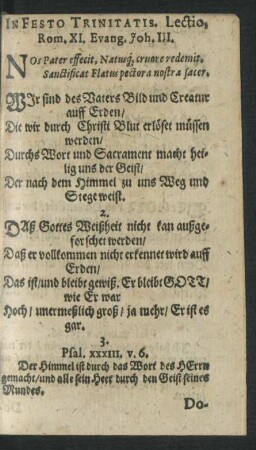 IN FESTO TRINITATIS. Lectio,
Rom. XI. Evang. Joh. III.
NOs Pater effecit, Natusq́, cruore redemit,
Sanctificat Flatus pectora nostra sacer.
WIr sind des Vaters Bild und Creatur
auff Erden/
Die wir durch Christi Blut erlöset müssen
werden/
Durchs Wort und Sacrament macht hei-
lig uns der Geist/
Der nach dem Himmel zu uns Weg und
Stege weist.
2.
DAß Gottes Weißheit nicht kan außge-
forschet werden/
Daß er vollkommen nicht erkennet wird auff
Erden/
Das ist/und bleibt gewiß. Er bleibt GOTT/
wie Er war
Hoch/ unermeßlich groß/ ja mehr/ Er ist es
gar.
3.
Psal. XXXIII. v. 6.
Der Himmel ist durch das Wort des HErrn
gemacht/und alle sein Heer durch den Geist seines
Mundes.
Do-